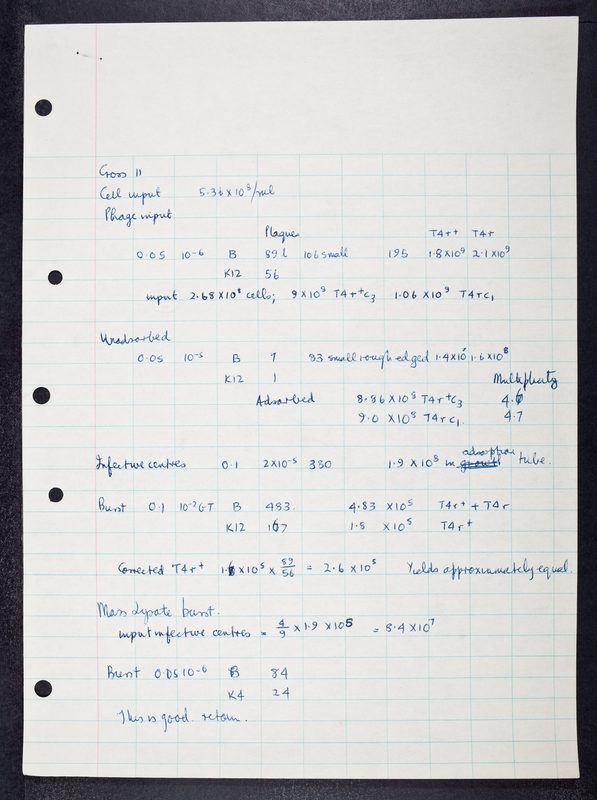 Cross 11
Cell input 5.36 X 10⁸/ml
Phage input
Plaques T4r+ T4r
0.05 10⁻⁶ B 89 l 106 small 195 1.8X10⁹ 2.1X10⁹
K12 56
input 2.68X10⁸ cells; 9X10⁸ T4r+c₃ 1.06X10⁹ T4rc₁
Unadsorbed
0.05 10⁻⁵ B 7 83 small rough edged 1.4X10⁷ 1.6X10⁸
K12 1 Multiplicity
Adsorbed 8.86X10⁸ T4r+c₃ 4.6
9.0 X10⁸ T4rc₁. 4.7
Infective centres 0.1 2X10⁻⁵ 380 1.9 X10⁸ in growth adsorption tube.
Burst 0.1 10⁻²GT B 483. 4.83 X10⁵ T4r+ + T4r
K12 167 1.8 X10⁵ T4r+
Corrected T4r+ 1.6X10⁵ X 89/56 = 2.6 X10⁵ Yields approximately equal.
Mass Lysate burst.
input infective centres = 4/9 X 1.9 X10⁸ = 8.4X10⁷
Burst 0.05 10⁻⁶ B 84
K4 24
This is good. retain.